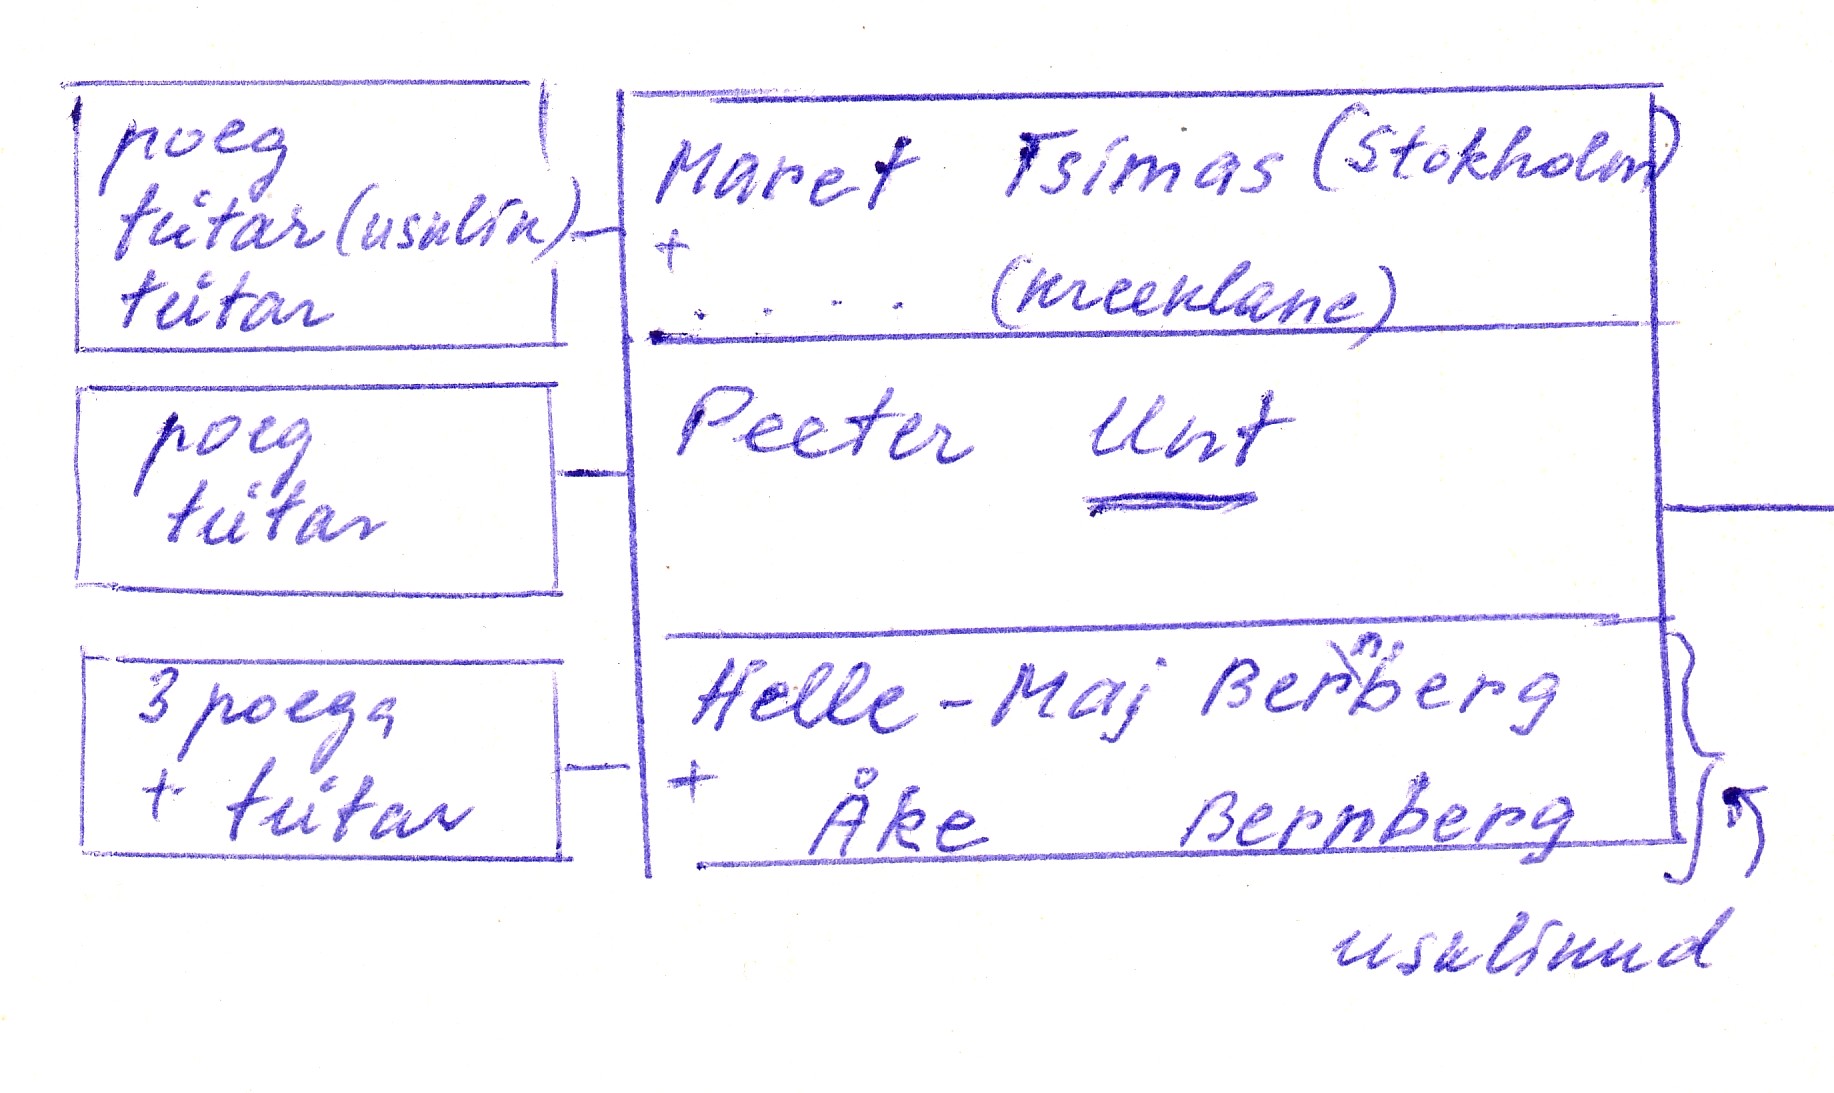 poeg
tütar (usklik)
tütar
Maret Tsimas (Stokholm)
+
. . . . (kreeklane)
poeg
tütar
Peeter Unt
3 poega
+ tütar
Helle-Maj Bernberg
+
Åke Bernberg
usklikud